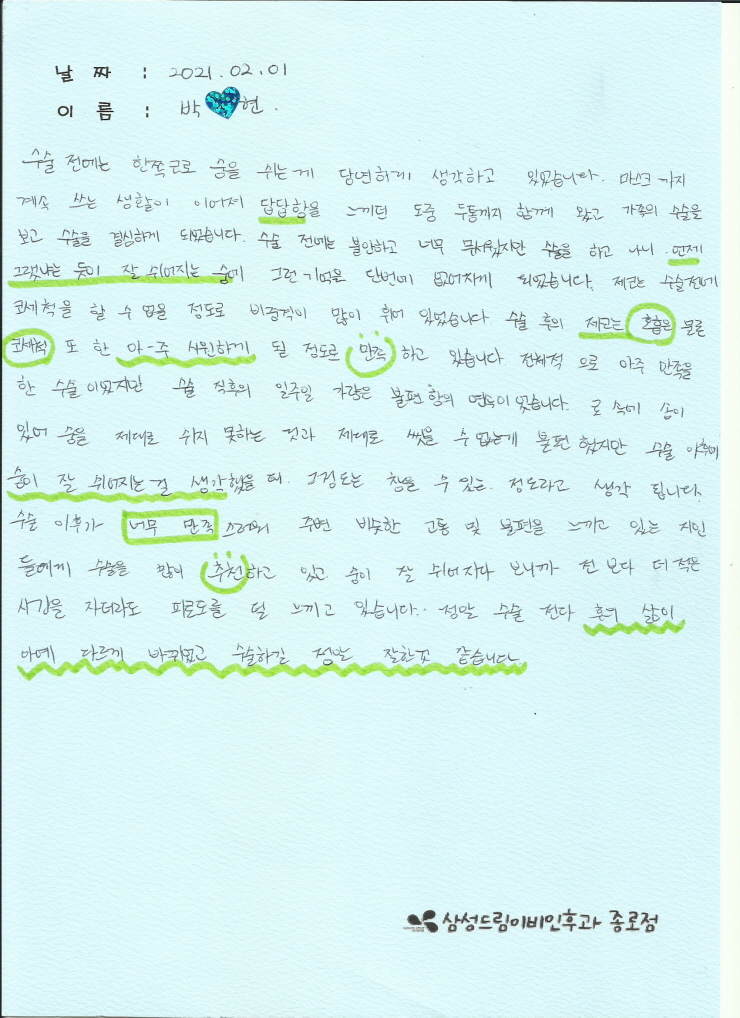 날 짜 : 2021. 02. 01
이 름 : 박 현.
수술 전에는 한쪽코로 숨을 쉬는게 당연하게 생각하고 있었습니다. 마스크 까지
계속 쓰는 생활이 이어져 답답함을 느끼던 도중 두통까지 함께 왔고 가족의 수술을
보고 수술을 결심하게 되었습니다. 수술 전에는 불안하고 너무 무서웠지만 수술을 하고 나니. 언제
그랬냐는 듯이 잘 쉬어지는 숨에 그런 기억은 단번에 없어지게 되었습니다. 제코는 수술전에
코세척을 할 수 없을 정도로 비중격이 많이 휘어 있었습니다 수술 후의 제코는 호흡은 물론
코세척 또 한 아-주 시원하게 될 정도로 만족 하고 있습니다 전체적 으로 아주 만족을
한 수술 이었지만 수술 직후의 일주일 가량은 불편함의 연속이었습니다. 코 속에 솜이
있어 숨을 제대로 쉬지 못하는 것과 제대로 씻을 수 없는게 불편 했지만 수술 이후에
숨이 잘 쉬어지는걸 생각했을 때. 그정도는 참을 수 있는. 정도라고 생각 됩니다.
수술 이후가 너무 만족 스러워 주변 비슷한 고통 및 불편을 느끼고 있는 지인
들에게 수술을 많이 추천하고 있고 숨이 잘 쉬어지다 보니까 전 보다 더 적은
시간을 자더라도 피로도를 덜 느끼고 있습니다. 정말 수술 전과 후의 삶이
아예 다르게 바뀌었고 수술하길 정말 잘한것 같습니다
삼성드림이비인후과 종로점